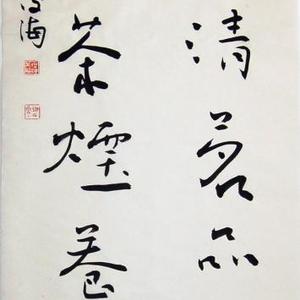 清茗品
茶煙養
海